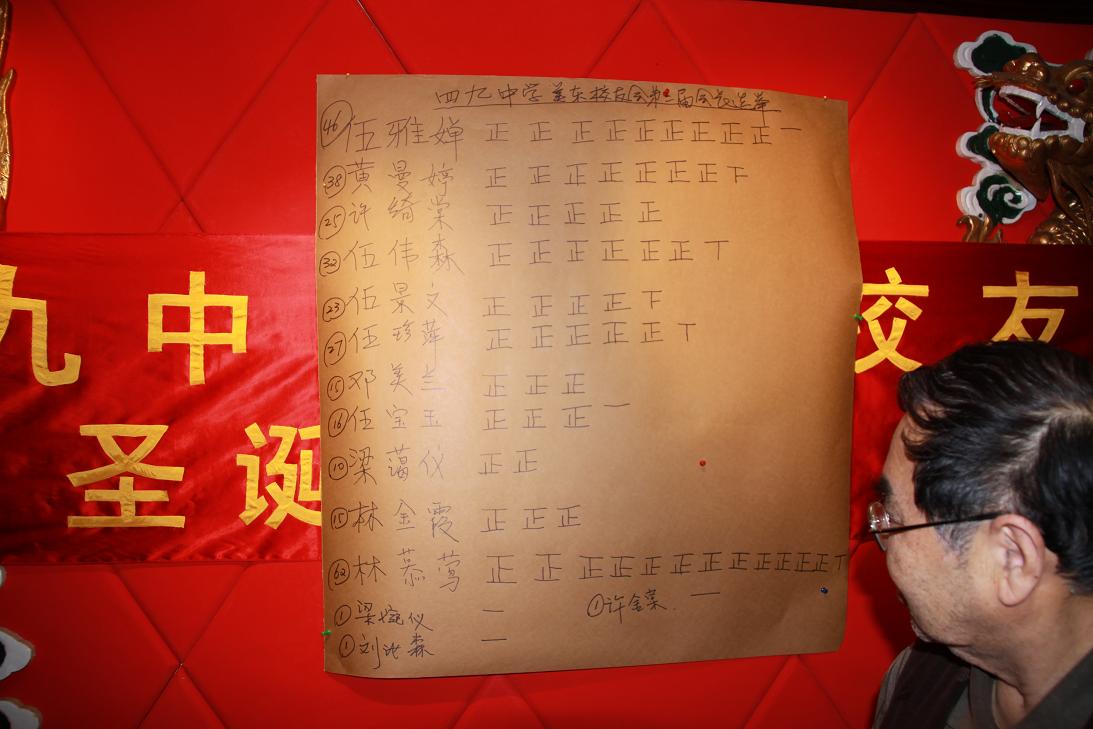 四九中学美东校友会第二届会长选举
46 伍雅婵 正 正 正 正 正 正 正 正 正 一
38 黄曼婷 正 正 正 正 正 正 正 下
25 许绮棠 正 正 正 正 正
32 伍伟森 正 正 正 正 正 正 丅
23 伍景文 正 正 正 正 下
27 伍珍萍 正 正 正 正 正 丅
15 邓美兰 正 正 正
16 伍宝玉 正 正 正 一
10 梁蔼仪 正 正
15 林金霞 正 正 正
62 林慕莺 正 正 正 正 正 正 正 正 正 正 正 正 丅
1 梁婉仪 一 1 许金棠 一
1 刘 森 一
九中 校友
圣诞